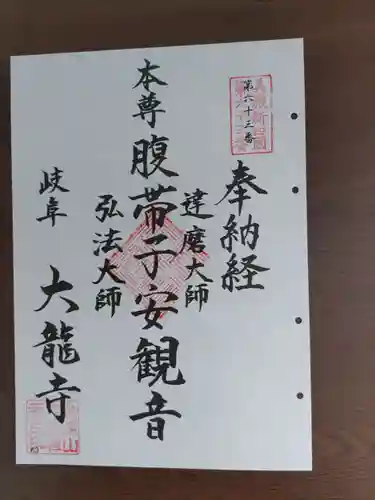 第六十三番
奉納経
達磨大師
本尊腹帯子安観音
弘法大師
岐阜
大龍寺